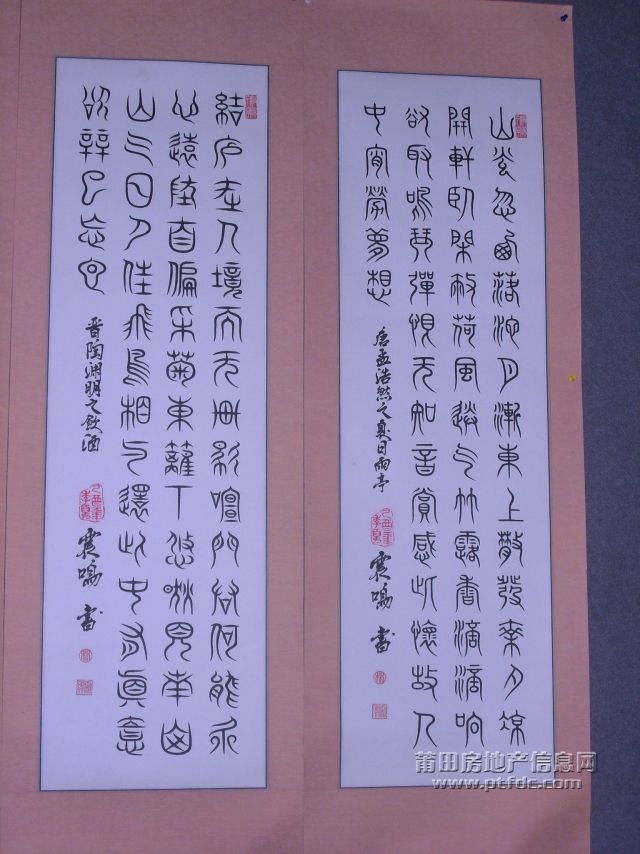 山光忽西落池月漸東上散發乘夕涼
開軒臥閑敞荷風送气竹露香滴滴响
欲取鳴琴彈恨无知音賞感此懷故人
中宵勞夢想
唐孟浩然之夏日南亭
乙酉年季夏
震鳴書
結庐在人境而无車馬喧問君何能尔
心遠地自偏采菊東籬下悠然見南山
山气日夕佳飛鳥相与還此中有真意
欲辭已忘言
晉陶淵明之飲酒
乙酉年季夏
震鳴書
莆田房地产信息网
www.ptfdc.com